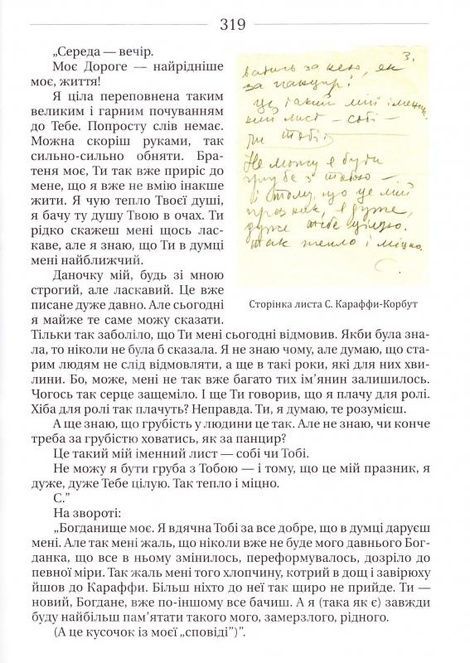 319
„Середа — вечір.
Моє Дороге — найрідніше
моє, життя!
Я ціла переповнена таким
великим і гарним почуванням
до Тебе. Попросту слів немає.
Можна скоріш руками, так
сильно-сильно обняти. Бра-
теня моє, Ти так вже приріс до
мене, що я вже не вмію інакше
жити. Я чую тепло Твоєї душі,
я бачу ту душу Твою в очах. Ти
рідко скажеш мені щось лас-
каве, але я знаю, що Ти в думці
мені найближчий.
Даночку мій, будь зі мною
строгий, але ласкавий. Це вже
писане дуже давно. Але сьогодні
я майже те саме можу сказати.
3.
ватись за нею, як
за панцир?
Це такий мій імен-
ний лист — собі —
чи Тобі.
Не можу я бути
груба з Тобою —
і тому, що це мій
празник, я дуже,
дуже Тебе цілую.
Так тепло і міцно.
С.
Сторінка листа С. Караффи-Корбут
Тільки так заболіло, що Ти мені сьогодні відмовив. Якби була зна-
ла, то ніколи не була б сказала. Я не знаю чому, але думаю, що ста-
рим людям не слід відмовляти, а ще в такі роки, які для них хви-
лини. Бо, може, мені не так вже багато тих ім’янин залишилось.
Чогось так серце защеміло. І ще Ти говорив, що я плачу для ролі.
Хіба для ролі так плачуть? Неправда. Ти, я думаю, те розумієш.
А ще знаю, що грубість у людини це так. Але не знаю, чи конче
треба за грубістю ховатись, як за панцир?
Це такий мій іменний лист — собі чи Тобі.
Не можу я бути груба з Тобою — і тому, що це мій празник, я
дуже, дуже Тебе цілую. Так тепло і міцно.
С.”
На звороті:
„Богданище моє. Я вдячна Тобі за все добре, що в думці даруєш
мені. Але так мені жаль, що ніколи вже не буде мого давнього Бог-
данка, що все в ньому змінилось, переформувалось, дозріло до
певної міри. Так жаль мені того хлопчину, котрий в дощ і завірюху
йшов до Караффи. Більш ніхто до неї так щиро не прийде. Ти —
новий, Богдане, вже по-іншому все бачиш. А я (така як є) завжди
буду найбільш пам’ятати такого мого, замерзлого, рідного.
(А це кусочок із моєї „сповіді”)”.